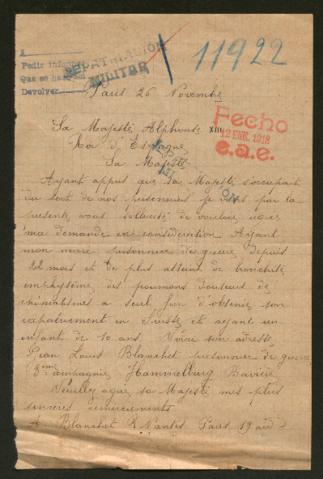 A
Pedir infor
Que se ha
Devolver
REPATRIACION
MILITAR
11922
Paris 26 Novembre
Sa Majesté Alphonse XIII
Roi d'Espagne
Fecho
12 ENE. 1918
e.a.e.
Sa Majesté
Ayant appris que sa Majesté s'occupait
du sort de nos prisonniers je viens par la
presente vous
ma demande en consideration. Ayant
mon mari prisonnier de guerre depuis
mois et de plus atteint de bronchite
emphysème des poumons douleurs de
rhumatismes a seul fin d'obtenir son
rapatriement en Suisse et ayant un
enfant de 10 ans. Voici son adresse
Jean Louis Blanchet prisonnier de guerre
3eme compagnie Hammelburg Bavière
Veuillez agreer sa Majesté mes plus
sincères remerciements
Blanchet R Nantes Paris 19